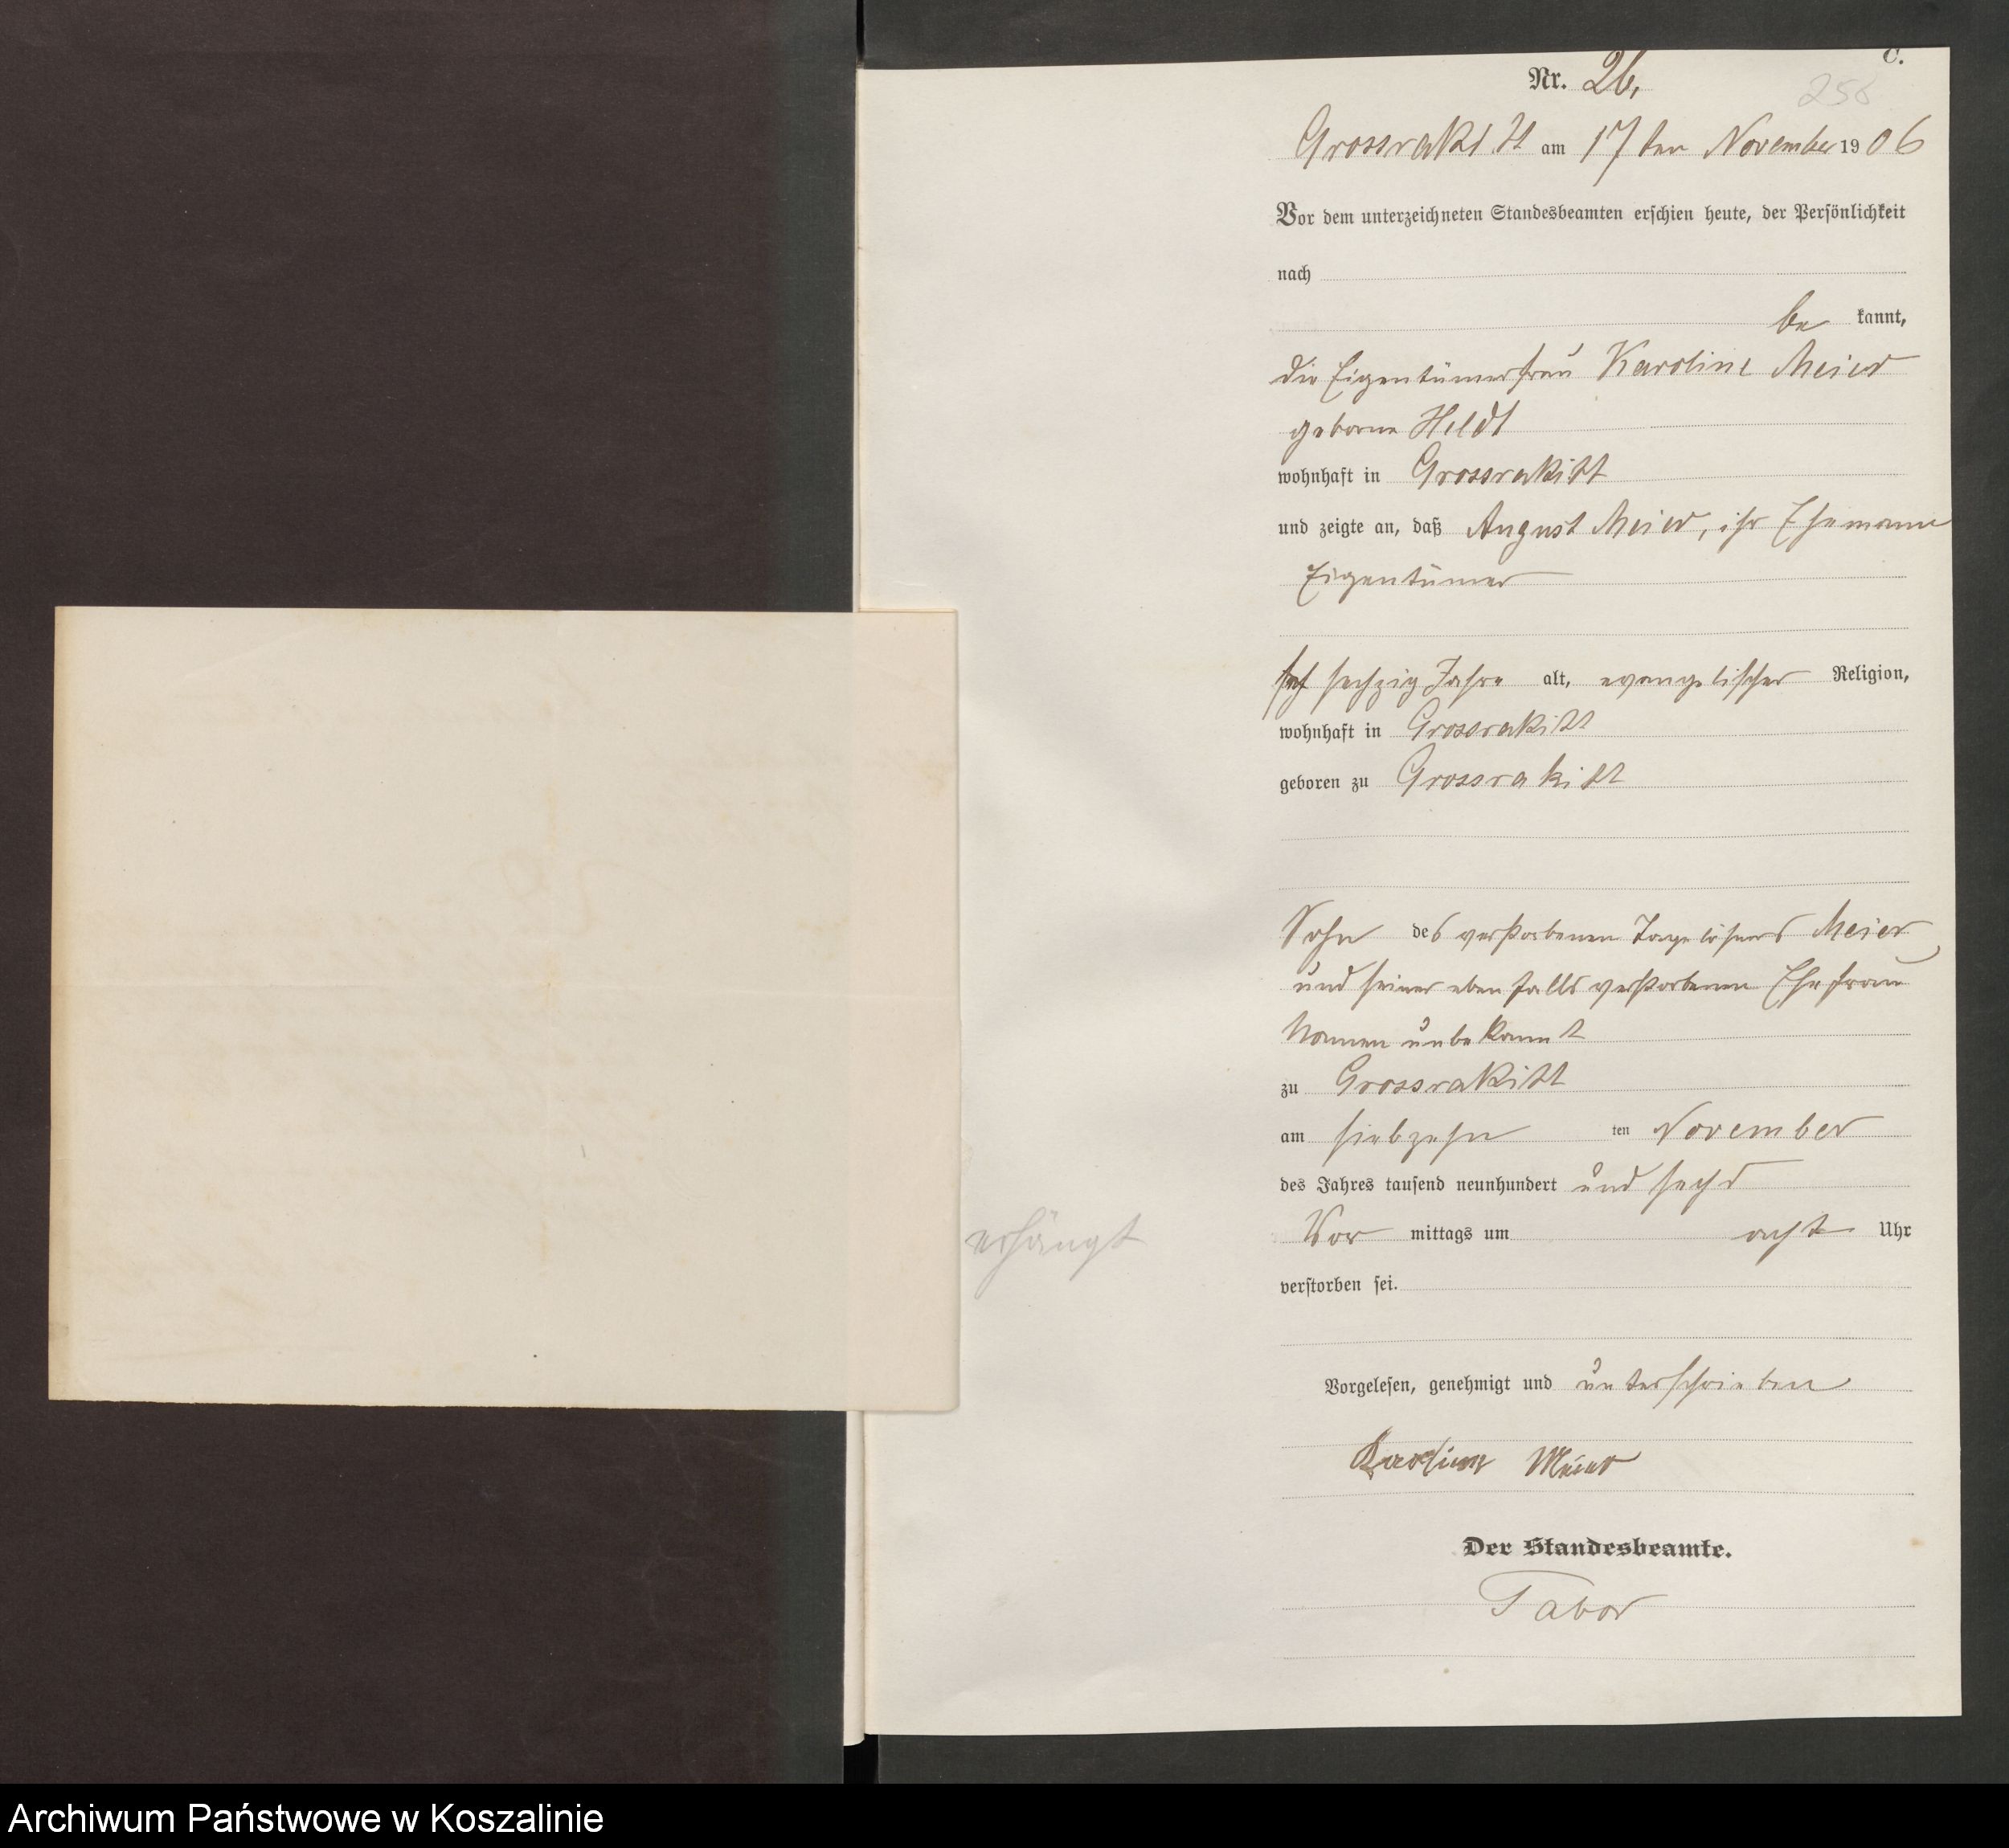 C.
Nr. 26,
258
Grossrakitt am 17ten November 1906
Vor dem unterzeichneten Standesbeamten erschien heute, der Persönlichkeit
nach
be kannt,
die Eigentümerfrau Karoline Meier
geborne Heldt
wohnhaft in Grossrakitt
und zeigte an, daß August Meier, ihr Ehemann
Eigentümer
sechzig Jahre alt, evangelischer Religion,
wohnhaft in Grossrakitt
geboren zu Grossrakitt
Sohn des verstorbenen Tagelöhners Meier
und seiner ebenfalls verstorbenen Ehefrau
Namen unbekannt
zu Grossrakitt
am siebzehn ten November
des Jahres tausend neunhundert und sechs
Vor mittags um acht Uhr
erhängt
verstorben sei.
Vorgelesen, genehmigt und unterschrieben
Karoline Meier
Der Standesbeamte.
Tabor
Archiwum Państwowe w Koszalinie